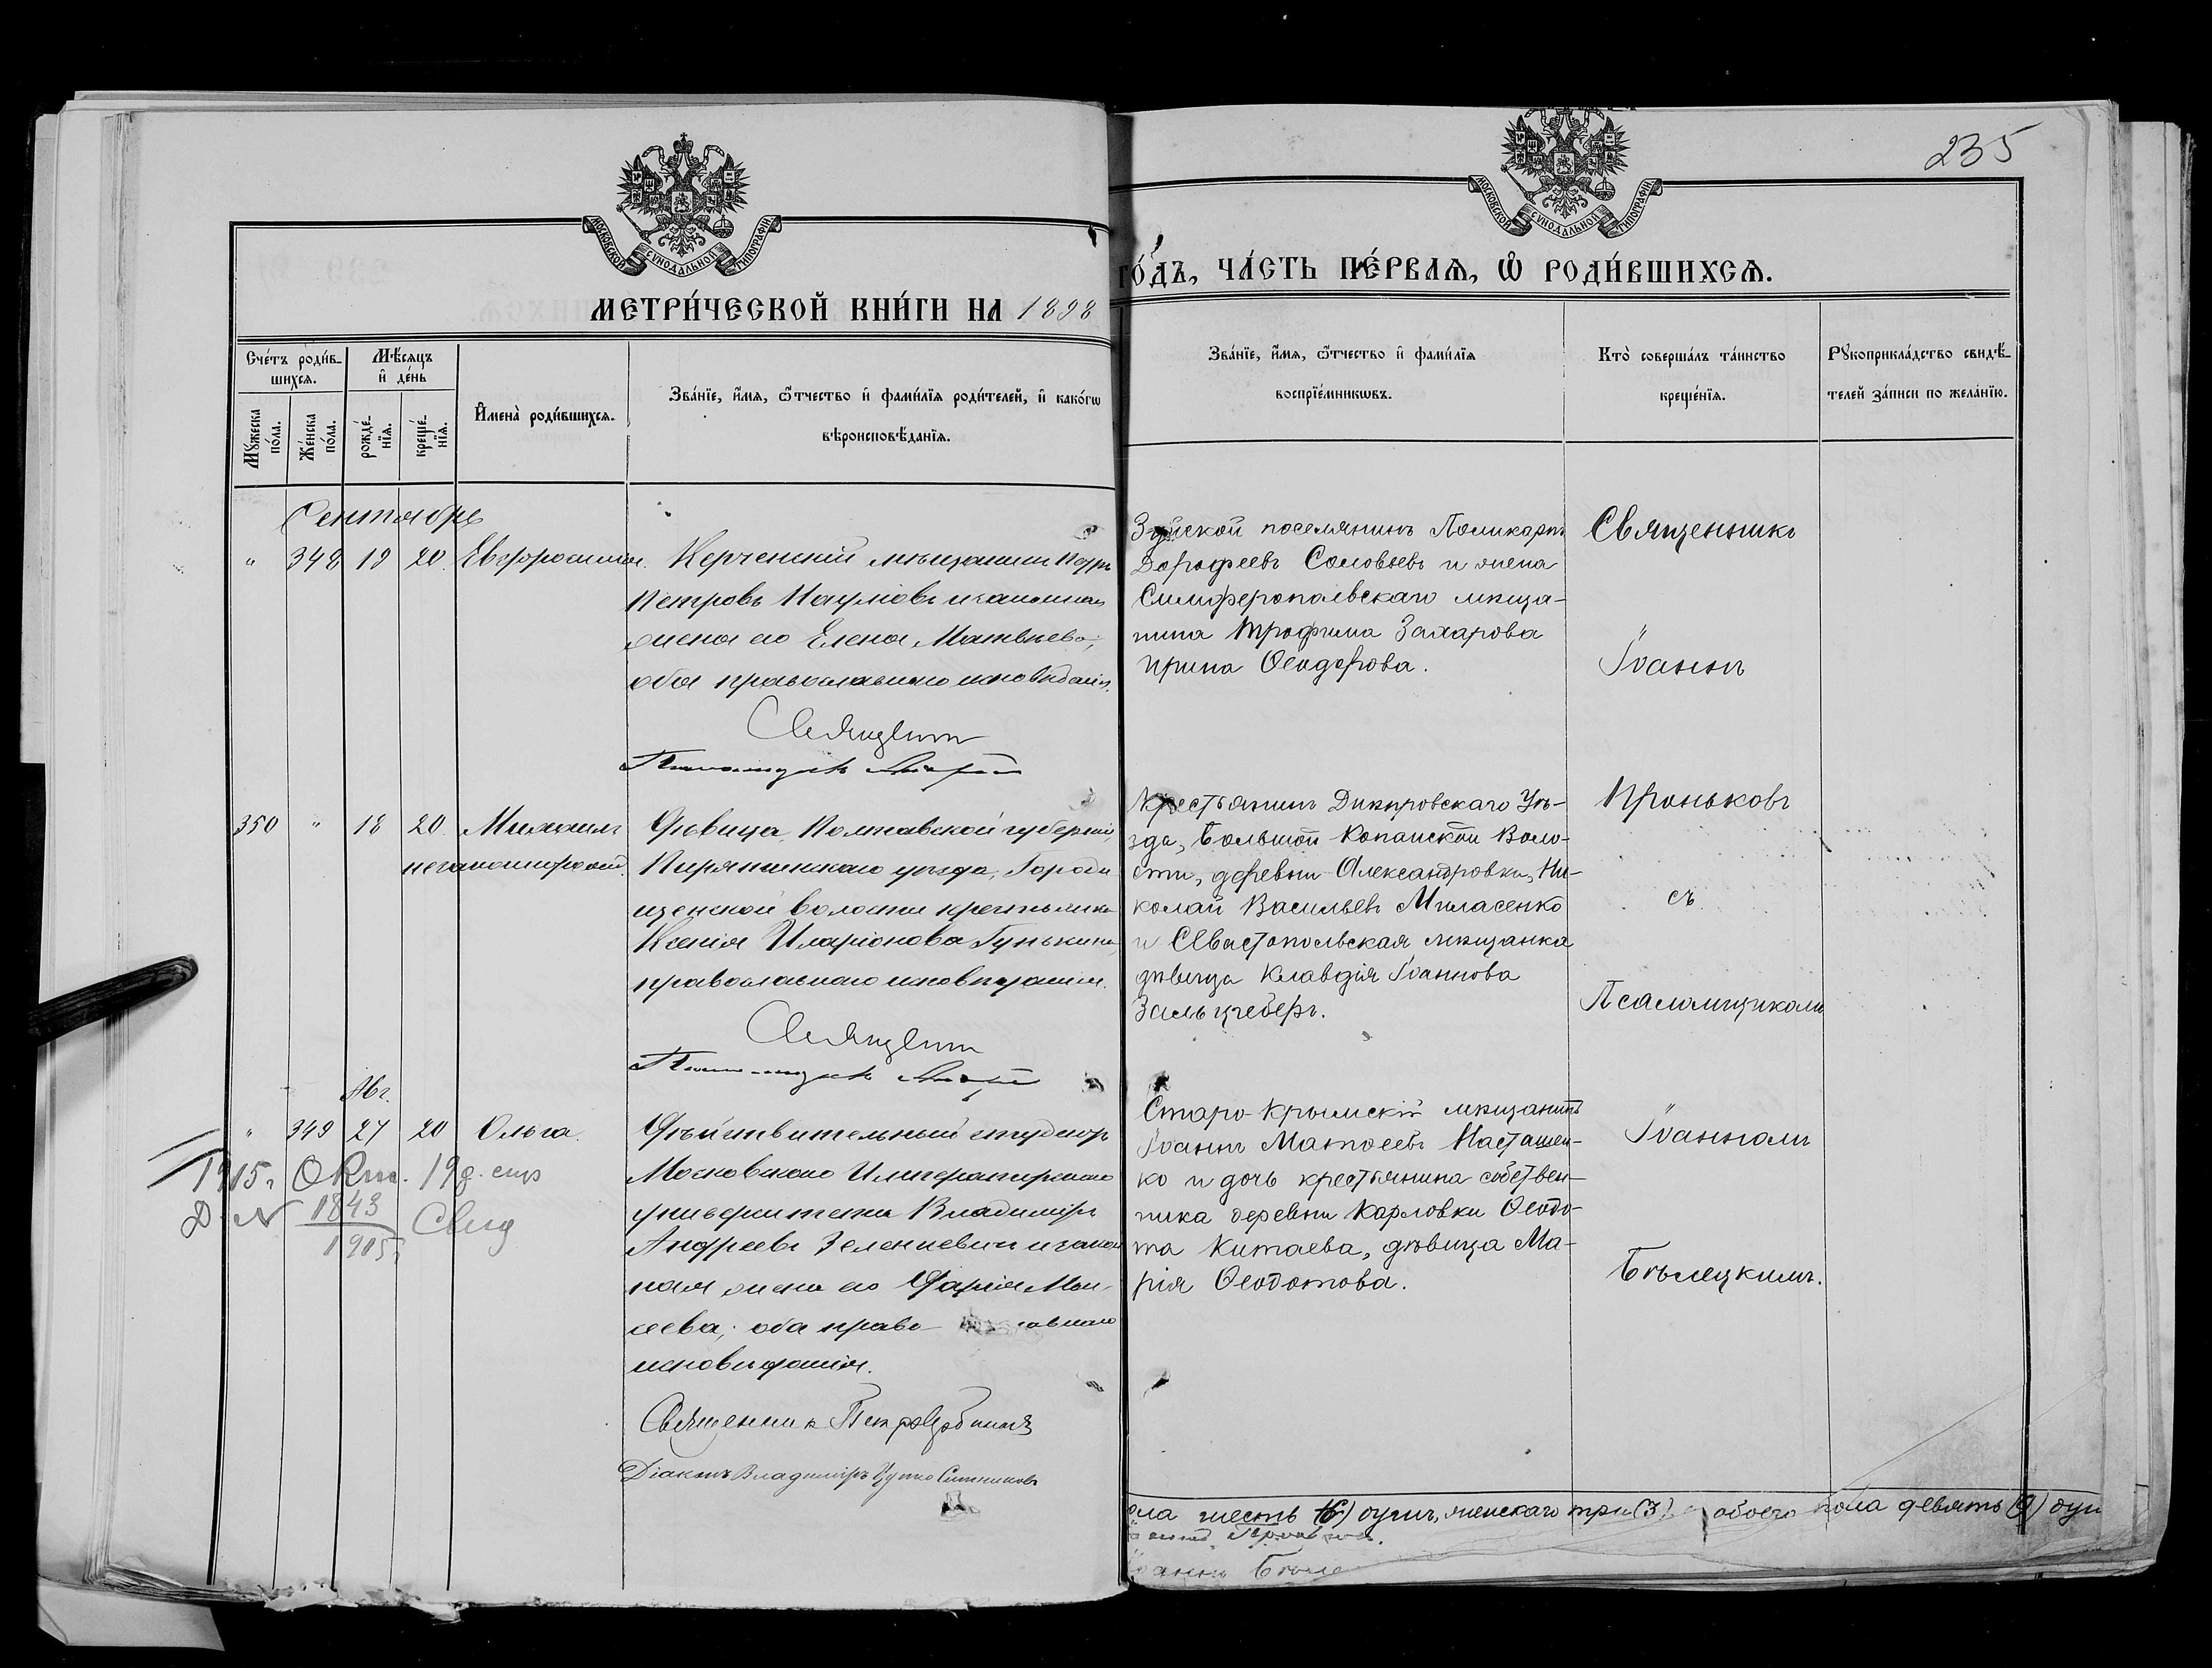 235
МОСКОВСКОЙ СѴНОДАЛЬНОЙ ТИПОГРАФІИ.
МОСКОВСКОЙ СѴНОДАЛЬНОЙ ТИПОГРАФІИ.
МЕТРИ́ЧЕСКОЙ КНИ́ГИ НА 1898
ГО́ДЪ, ЧА́СТЬ ПЕ́РВАѦ, Ѽ РОДИ́ВШИХСѦ.
Сче́тъ роди́в-
шихсѧ.
Мꙋжеска
по́ла.
Же́нска
по́ла.
Мѣ́сѧцъ
и҆ де́нь
рожде́-
нїѧ.
креще́-
нїѧ.
И҆мена̀ роди́вшихсѧ.
Зва́нїе, и҆́мѧ, ѻ҆́тчество и҆ фами́лїѧ роди́телей, и҆ како́гѡ
вѣроисповѣ́данїѧ.
Зва́нїе, и҆́мѧ, ѻ҆́тчество и҆ фами́лїѧ
воспрїе́мникѡвъ.
Кто̀ соверша́лъ та́инство
креще́нїѧ.
Рꙋкоприкла́дство свидѣ́-
телей за́писи по жела́нїю.
Сентябрь
" 348 19 20. Евфросинія.
Керченскій мѣщанинъ Петръ
Петровъ Наумовъ и законная
жена его Елена Матвѣева;
оба православнаго исповѣданія.
Священникъ
Зуйской поселянинъ Поликарпъ
Дорофеевъ Соловьевъ и жена
Симферопольскаго мѣща-
нина Трофима Захарова
Ирина Ѳеодорова.
Священникъ
"
Іоаннъ
350 " 18 20 Михаилъ
незаконнорожд.
Дѣвица, Полтавской губерніи,
Пирятинскаго уѣзда, Городи
щенской волости крестьянка
Ксенія Иларіонова Гунькина,
православнаго исповѣданія.
Священникъ
Крестьянинъ Днѣпровскаго Уѣ-
зда, Большой Копанской Воло-
сти, деревни Александровки, Ни-
колай Васильевъ Миласенко
и Севастопольская мѣщанка
дѣвица Клавдія Іоаннова
Зальцгеберъ.
Проньковъ
съ
Псаломщикомъ
Авг.
" 349 27 20 Ольга.
1915 г. Окт. 19 д.
Д. № 1843
1915 г.
Свид
Дѣйствительный студентъ
Московскаго Императорскаго
университета Владиміръ
Андреевъ Зеленкевичъ и закон
ная жена его Дарія Мои-
сеева; оба право славнаго
исповѣданія.
Священникъ Петръ
Діаконъ Владиміръ
Старо-Крымскій мѣщанинъ
Іоаннъ Матѳеевъ Насташен-
ко и дочь крестьянина собствен-
ника деревни Карловки Ѳеодо-
та Китаева, дѣвица Ма-
рія Ѳеодотова.
"
Іоанномъ
Бѣлецкимъ.
ола шесть (6) душъ, женскаго три (3) а обоего пола девять (9) душ